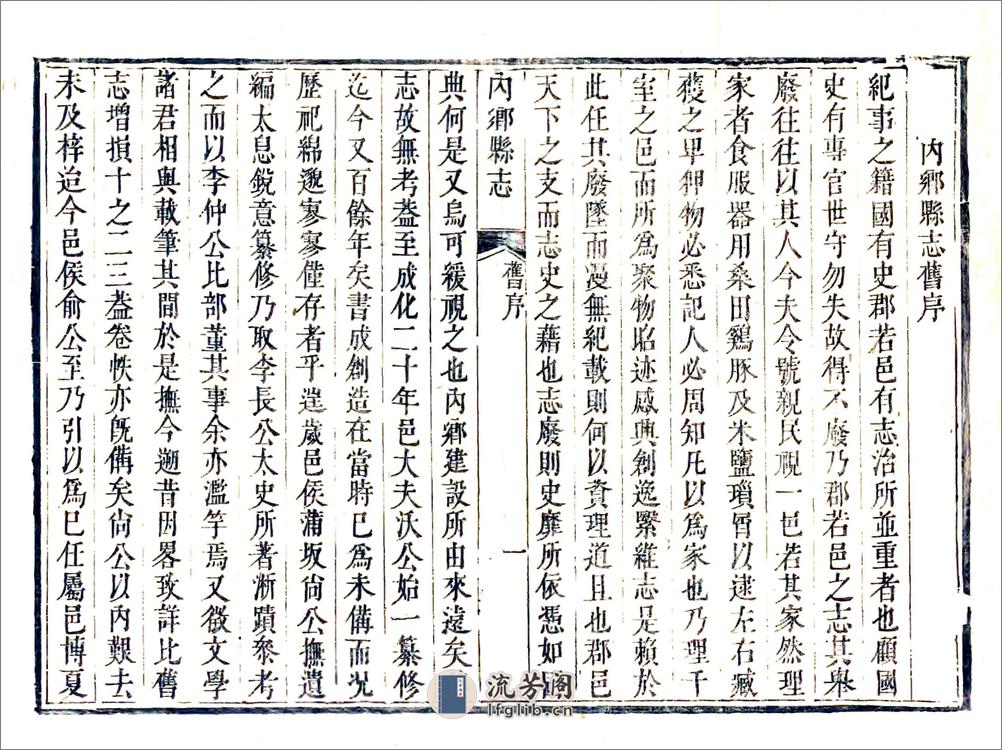 內鄉縣志舊序
紀事之籍國有史郡若邑有志治所並重者也顧國
史有專官世守勿失故得不廢乃郡若邑之志其舉
廢往往以其人今夫令號親民視一邑若其家然理
家者食服器用桑田鷄豚及米鹽瑣屑以逮左右臧
獲之卑狎物必悉記人必周知凡以爲家也乃理千
室之邑而所爲聚物昭迹感興創逸繄雜志是賴於
此任其廢墜而漫無紀載則何以資理道且也郡邑
天下之支而志史之藉也志廢則史靡所依憑如
內鄉縣志
舊序
一
典何是又烏可緩視之也內鄉建設所由來遠矣
志故無考葢至成化二十年邑大夫沃公始一纂修
迄今又百餘年矣書成創造在當時已爲未備而況
歷祀綿邈寥寥僅存者乎逹歲邑侯蒲坂尙公撫遺
編太息銳意纂修乃取李長公太史所著淅蹟叅考
之而以李仲公比部董其事余亦濫竽焉又徵文學
諸君相與載筆其間於是撫今遡昔因畧致詳比舊
志增損十之二三葢卷帙亦旣備矣尙公以內艱去
未及梓迨今邑侯俞公至乃引以爲已任屬邑博夏
流芳阁
lfglib.cn